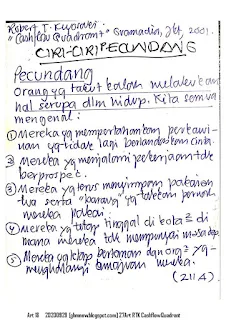 Robert T. Kiyosaki
"Cashflow Quadrant" Gramedia, Jkt, 2001.
CIRI-CIRI PECUNDANG
Pecundang
orang yg takut kalah melakukan
hal serupa dlm hidup. Kita semua
mengenal:
① Mereka yg mempertahankan perkawi-
nan yg tidak lagi berlandaskan cinta.
② Mereka yg menjalani pekerjaan tdk
berprospek.
③ Mereka yg terus menyimpan pakaian
tua serta "barang" yg takkan pernah
mereka pakai.
④ Mereka yg tetap tinggal di kota² di
mana mereka tdk mempunyai masa depan.
⑤ Mereka yg tetap berteman dgn org² yg
menghalangi kemajuan mereka.
(211A)
Art 18 20200809 (glennmw.blogspot.com) 27Art RTK CashflowQuadrant